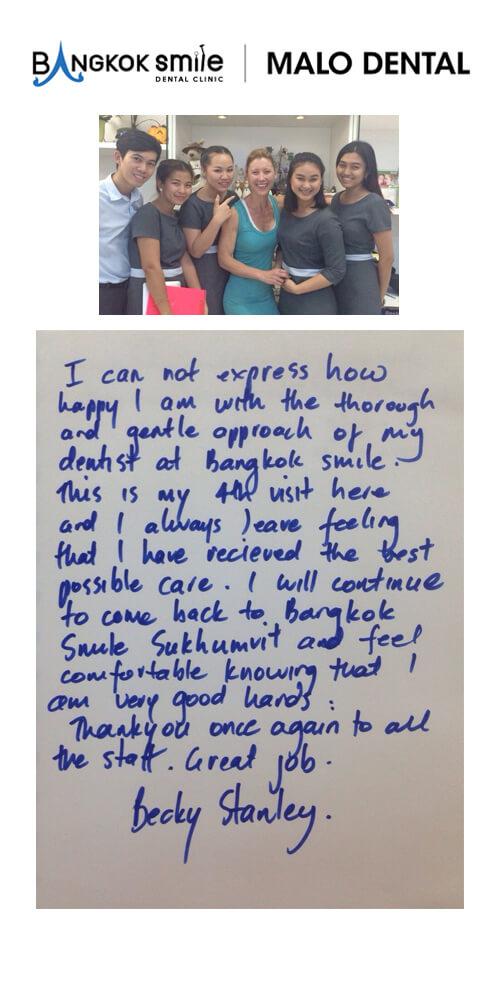 BANGKOK smile
DENTAL CLINIC
MALO DENTAL
I can not express how
happy I am with the thorough
and gentle approach of my
dentist at Bangkok smile.
This is my 4th visit here
and I always leave feeling
that I have recieved the best
possible care. I will continue
to come back to Bangkok
Smile Sukhumvit and feel
comfortable knowing that I
am very good hands.
Thankyou once again to all
the staff. Great job.
Becky Stanley.